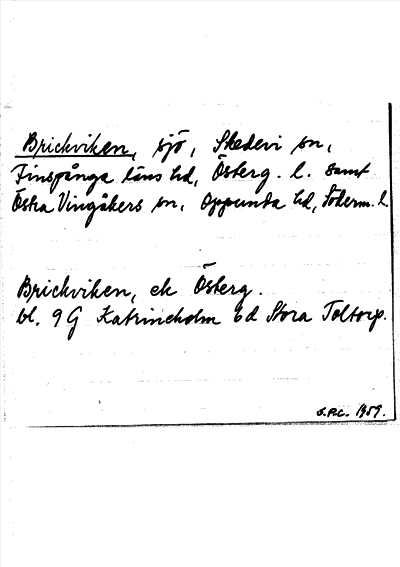 Brickviken, sjö, Skedevi sn,
Finspånga läns hd, Österg. l. samt
Östra Vingåkers sn, Oppunda hd, Söderm. l.
Brickviken, ek Österg.
bl. 9 G Katrineholm 6d Stora Toltorp.
1959.